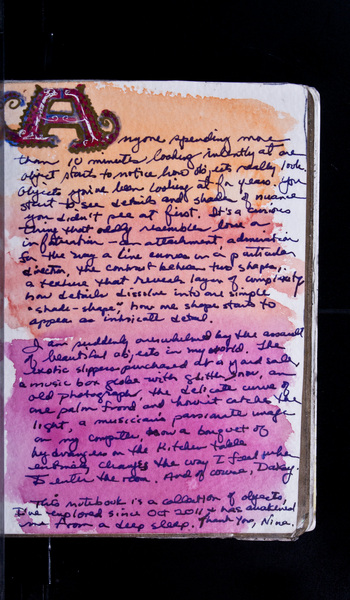 Anyone spending more
than 10 minutes looking intently at one
object starts to notice how objects really look.
Objects you've been looking at for years. You
start to see details and shades of nuance
you didn't see at first. It's a curious
thing that oddly resembles love or
infatuation - an attachment, admiration
for the way a line curves in a particular
direction, the contrast between two shapes,
a texture that reveals layers of complexity
how details dissolve into one simple
"shade-shape" how one shape starts to
appear as intricate detail
I am suddenly overwhelmed by the assault
of beautiful objects in my world. The
exotic slippers purchased at a yard sale,
a music box globe with glitter snow, an
old photograph, the delicate curve of
one palm frond and how it catches the
light, a musician's passionate image
on my computer, how a bouquet of
hydrangeas on the kitchen table
entirely changes the way I feel when
I enter the room. And of course, Daisy.
This notebook is a collection of objects,
I've explored since Oct 2011 & has awakened
me from a deep sleep. Thank You, Nina.